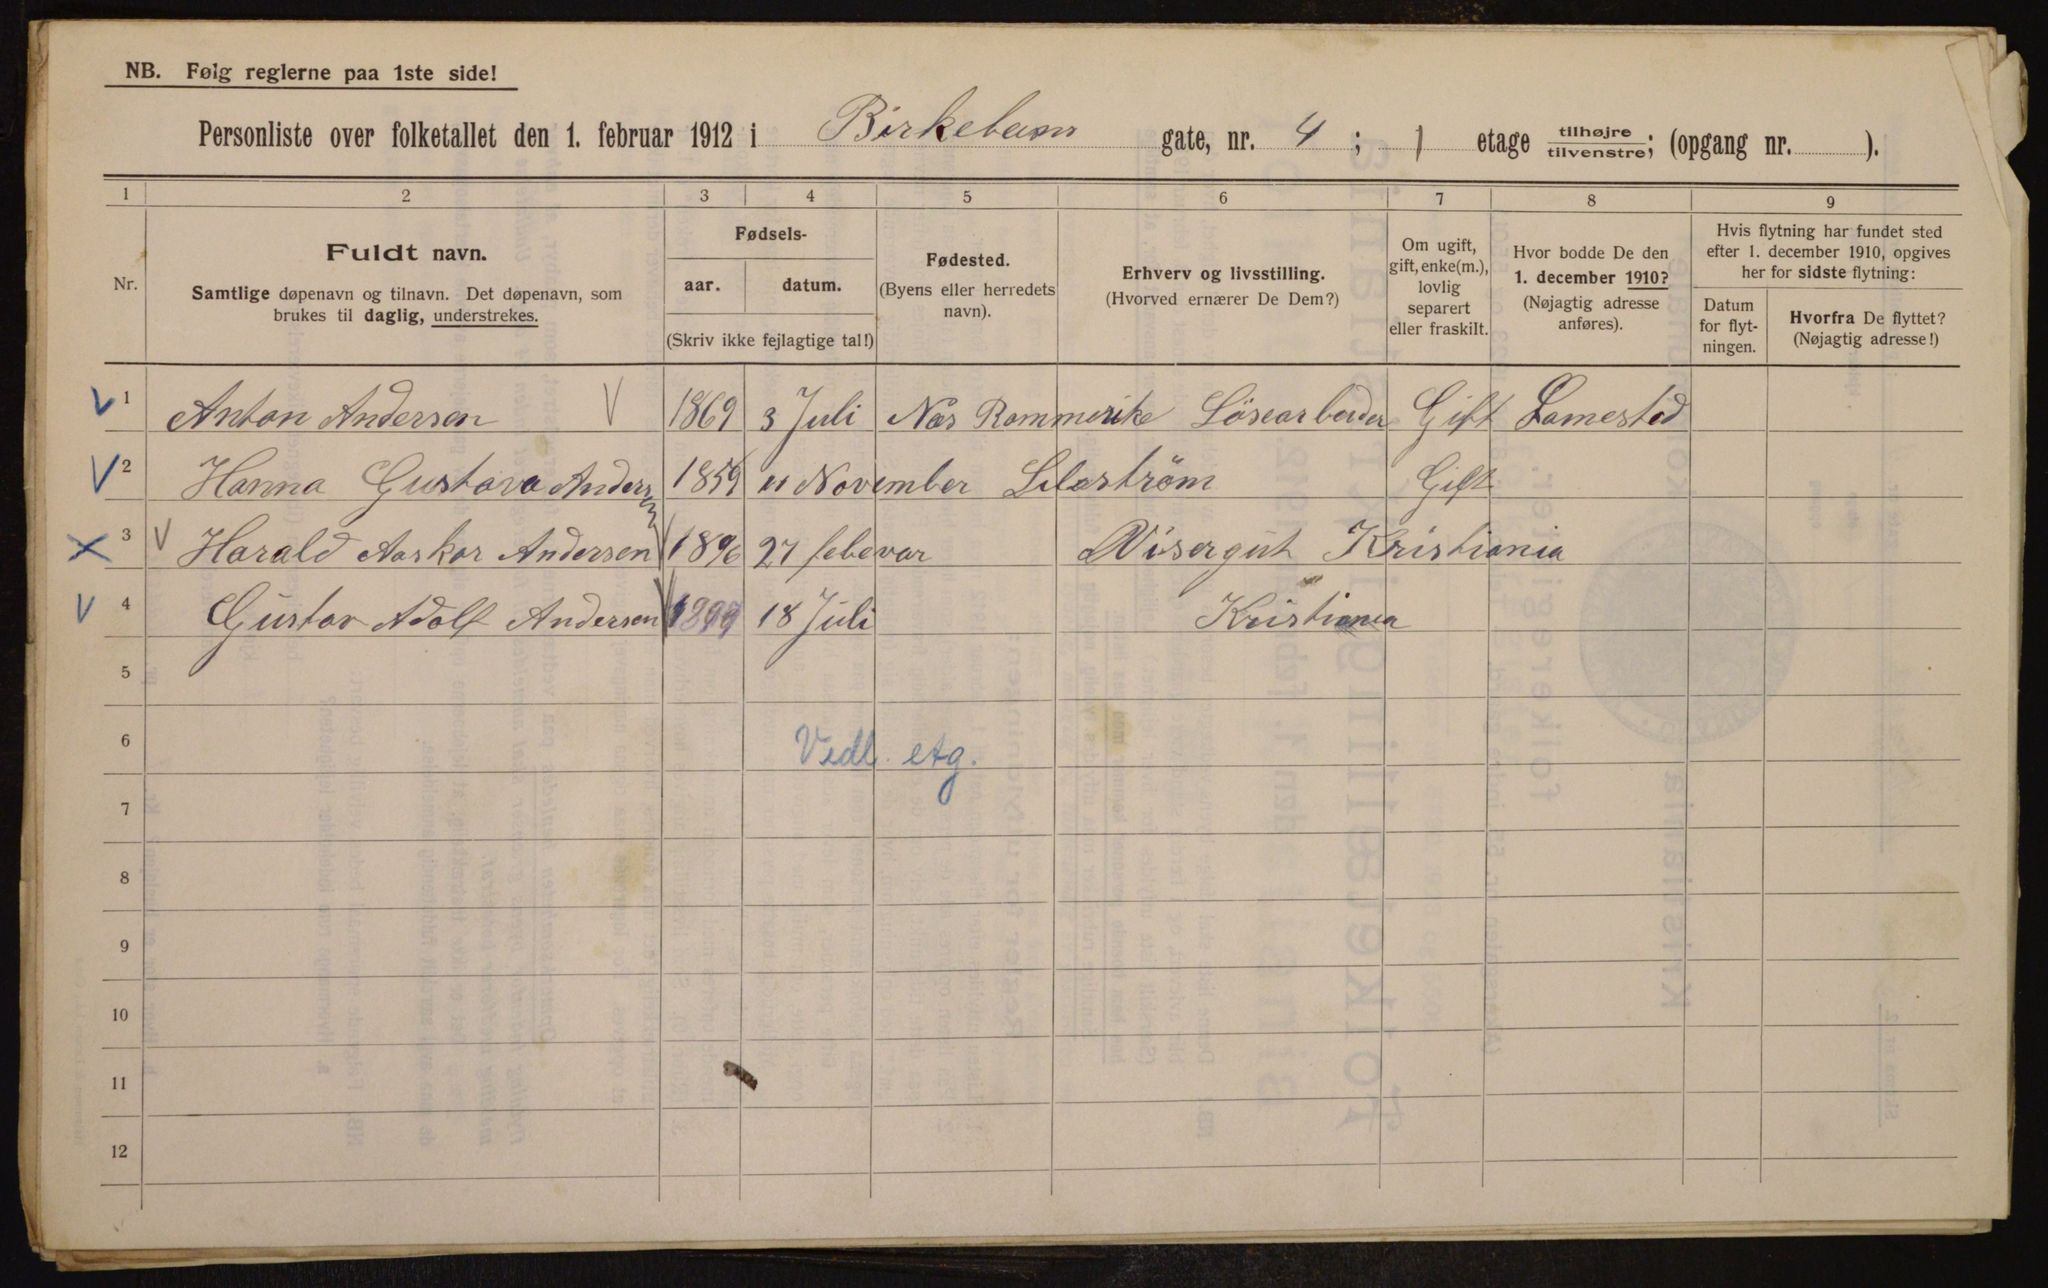 NB. Følg reglerne paa 1ste side!
Personliste over folketallet den 1. februar 1912 i Birkebens gate, nr. 4 ; 1 etage tilhøjre / tilvenstre ; (opgang nr. ).
1 2 3 4 5 6 7 8 9
Nr.
Fuldt navn.
Samtlige døpenavn og tilnavn. Det døpenavn, som
brukes til daglig, understrekes.
Fødsels-
aar. datum.
(Skriv ikke fejlagtige tal!)
Fødested.
(Byens eller herredets
navn).
Erhverv og livsstilling.
(Hvorved ernærer De Dem?)
Om ugift,
gift, enke(m.),
lovlig
separert
eller fraskilt.
Hvor bodde De den
1. december 1910?
(Nøjagtig adresse
anføres).
Hvis flytning har fundet sted
efter 1. december 1910, opgives
her for sidste flytning:
Datum
for flyt-
ningen.
Hvorfra De flyttet?
(Nøjagtig adresse!)
1 Anton Andersen 1869 3 Juli Næs Rommerike Løsearbeider Gift Samested
2 Hanna Gustava Andersen 1859 11 November Lilestrøm Gift
3 Harald Aaskar Andersen 1896 27 febevar Visergut Kristiania
4 Gustav Adolf Andersen 1899 18 Juli Kristiania
5
6 Vedl. etg.
7
8
9
10
11
12